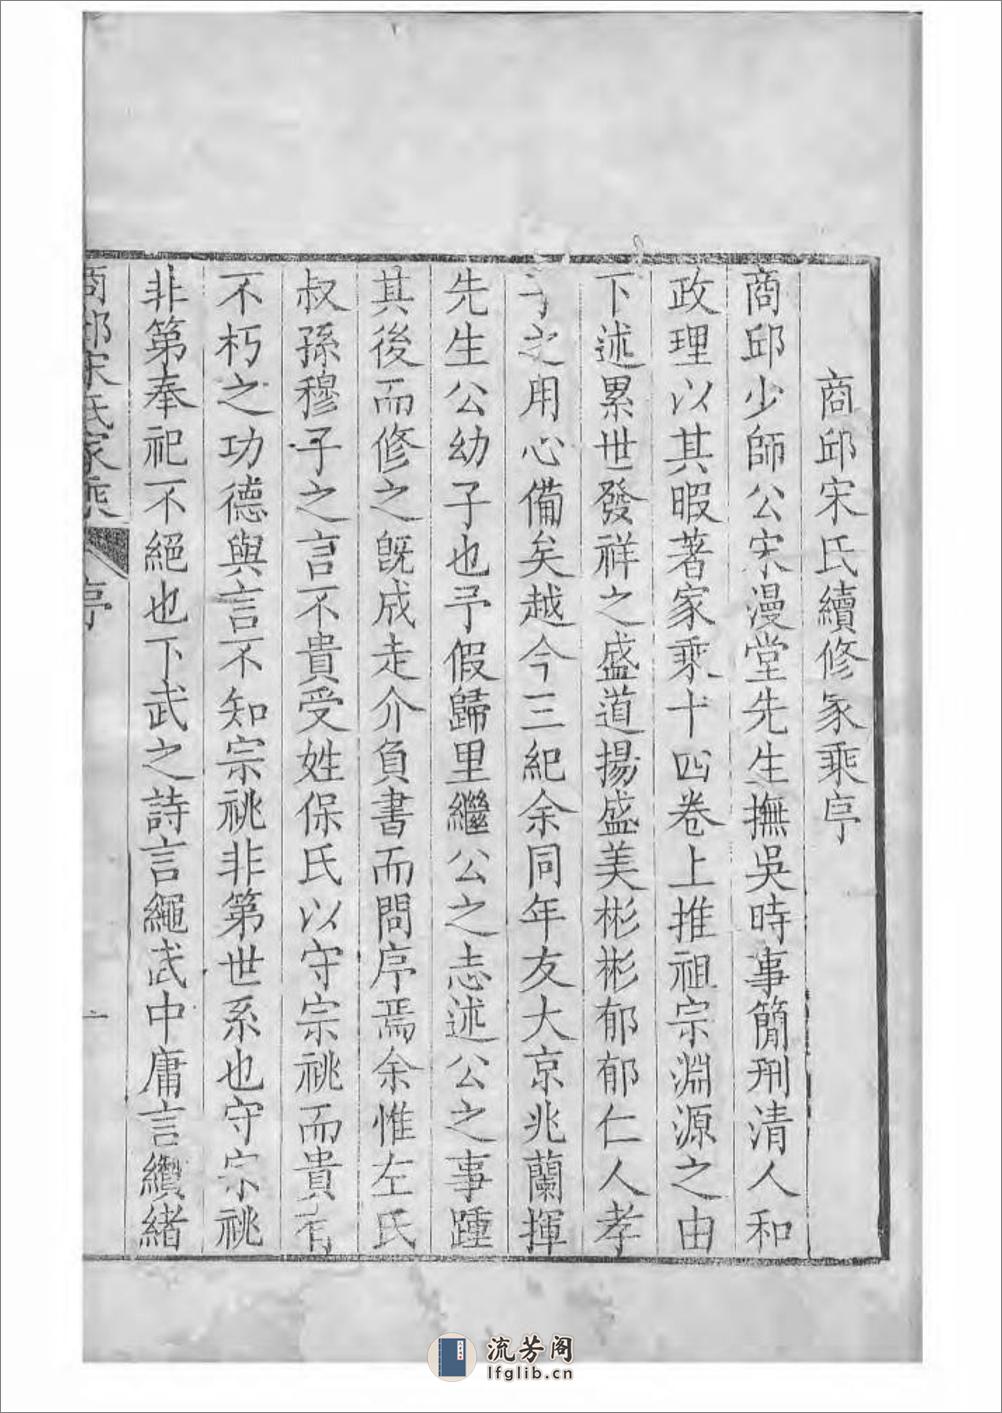 商邱宋氏續修家乘序
商邱少師公宋漫堂先生撫吳時事簡刑清人和
政理以其暇著家乘十四卷上推祖宗淵源之由
下述累世發祥之盛道揚盛美彬彬郁郁仁人孝
子之用心備矣越今三紀余同年友大京兆蘭揮
先生公幼子也予假歸里繼公之志述公之事踵
其後而修之旣成走介負書而問序焉余惟左氏
叔孫穆子之言不貴受姓保氏以守宗祧而貴有
不朽之功德與言不知宗祧非第世系也守宗祧
非第奉祀不絕也下武之詩言繩武中庸言纘緒
商邱宋氏家乘 序 一
流芳阁
lfglib.cn